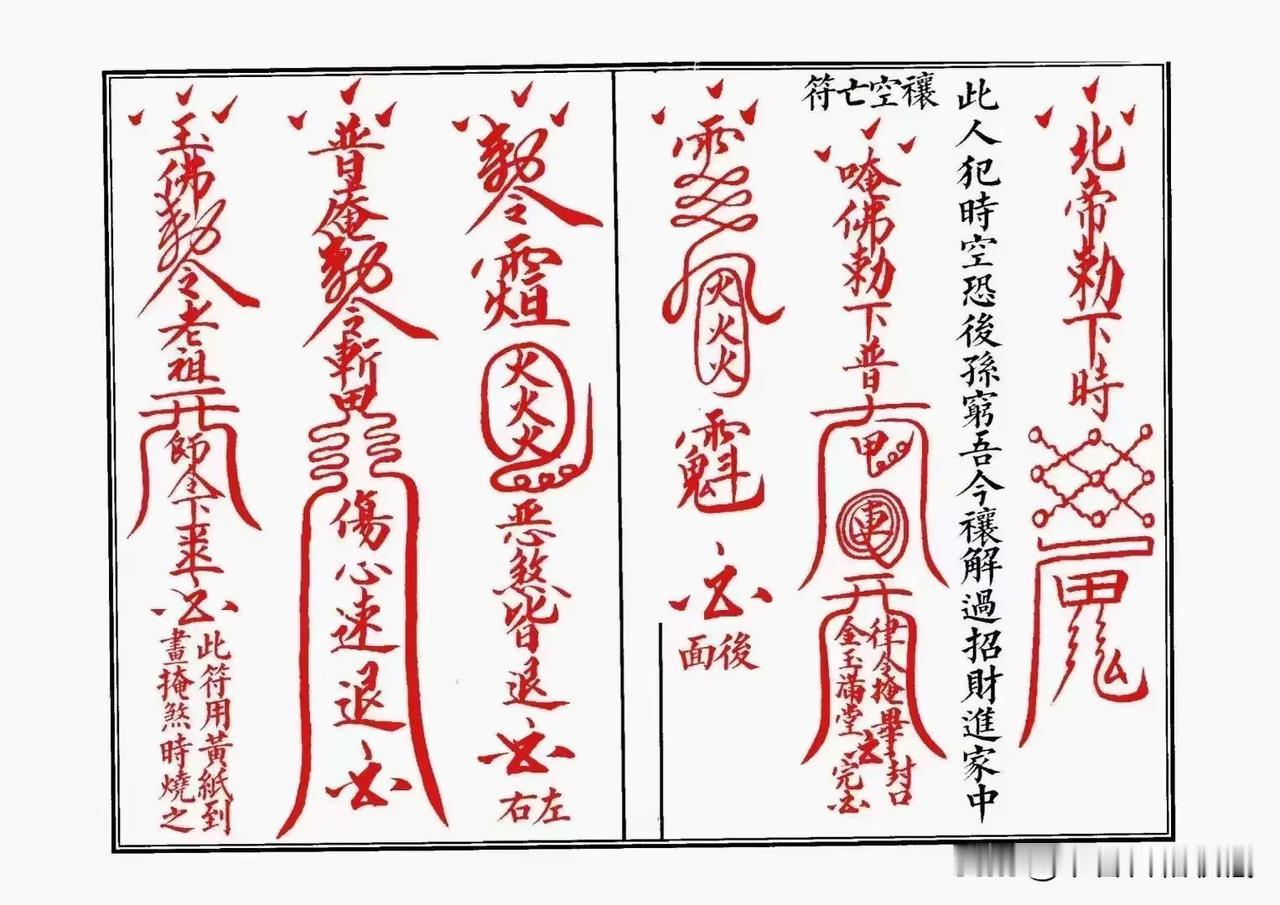 北帝勅下時
此人犯時空恐後孫窮吾今禳解過招財進家中
禳空亡符
唵佛勅下普
甲
律令掩畢封口
金玉滿堂完
火火火
後面
勅令
火火火
惡煞皆退
左右
普庵勅令斬
傷心速退
玉佛勅令老祖
師令下來
此符用黃紙到
畫掩煞時燒之